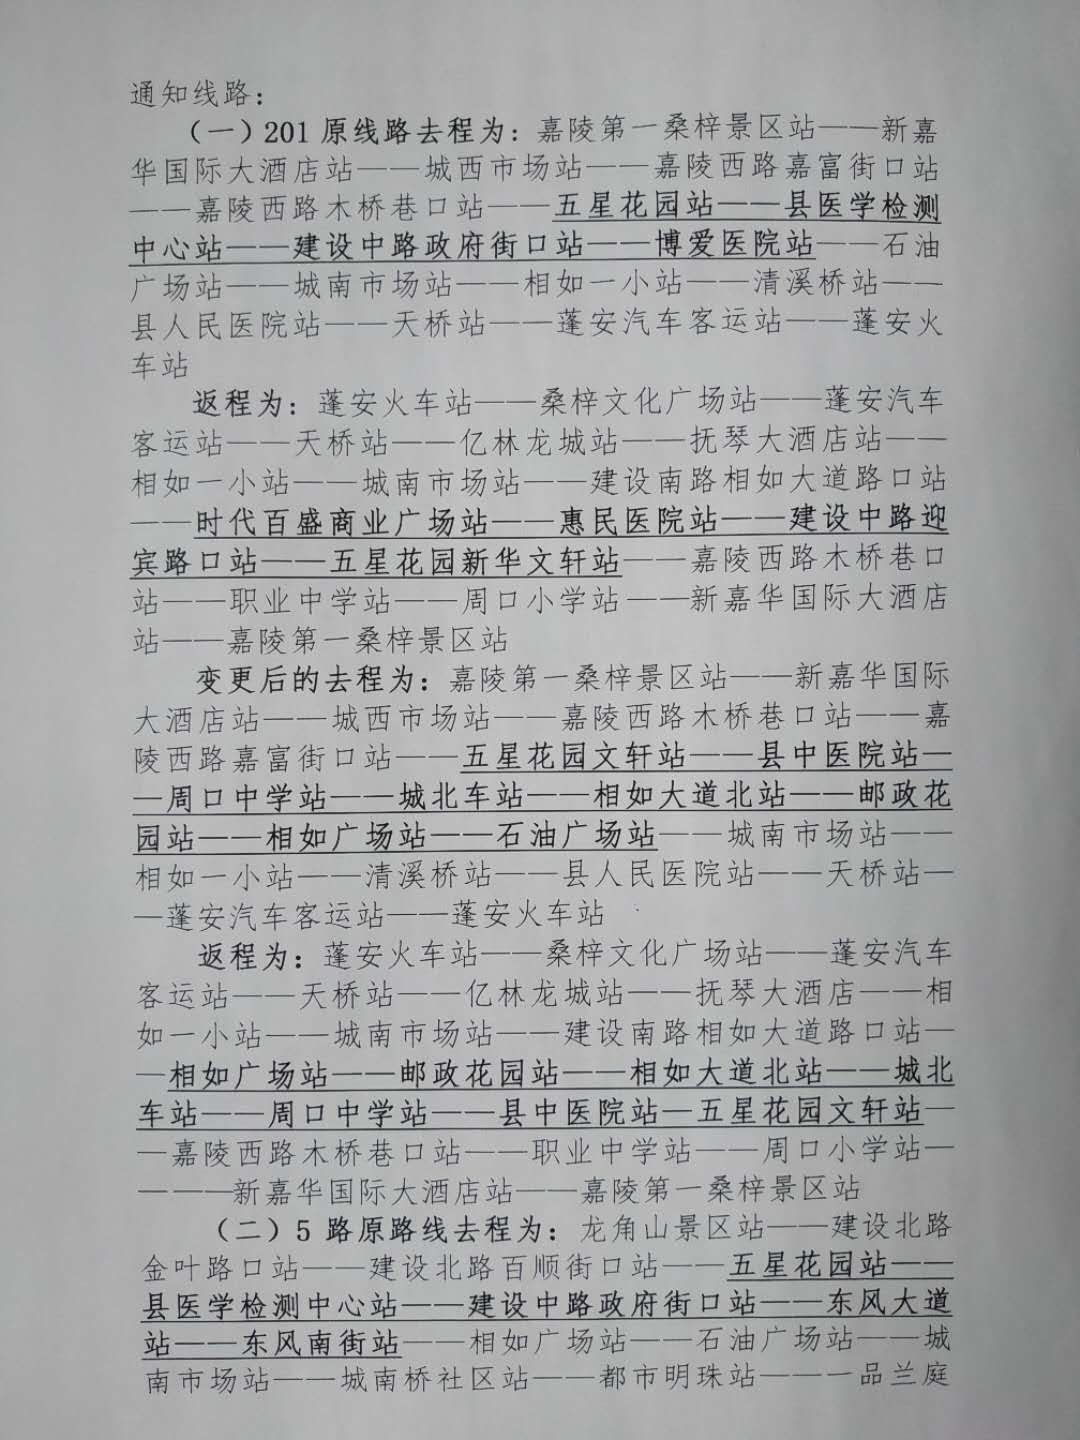 通知线路：
（一）201 原线路去程为：嘉陵第一桑梓景区站——新嘉
华国际大酒店站——城西市场站——嘉陵西路嘉富街口站
——嘉陵西路木桥巷口站——五星花园站——县医学检测
中心站——建设中路政府街口站——博爱医院站——石油
广场站——城南市场站——相如一小站——清溪桥站——
县人民医院站——天桥站——蓬安汽车客运站——蓬安火
车站
返程为：蓬安火车站——桑梓文化广场站——蓬安汽车
客运站——天桥站——亿林龙城站——抚琴大酒店站——
相如一小站——城南市场站——建设南路相如大道路口站
——时代百盛商业广场站——惠民医院站——建设中路迎
宾路口站——五星花园新华文轩站——嘉陵西路木桥巷口
站——职业中学站——周口小学站——新嘉华国际大酒店
站——嘉陵第一桑梓景区站
变更后的去程为：嘉陵第一桑梓景区站——新嘉华国际
大酒店站——城西市场站——嘉陵西路木桥巷口站——嘉
陵西路嘉富街口站——五星花园文轩站——县中医院站—
—周口中学站——城北车站——相如大道北站——邮政花
园站——相如广场站——石油广场站——城南市场站——
相如一小站——清溪桥站——县人民医院站——天桥站—
—蓬安汽车客运站——蓬安火车站
返程为：蓬安火车站——桑梓文化广场站——蓬安汽车
客运站——天桥站——亿林龙城站——抚琴大酒店——相
如一小站——城南市场站——建设南路相如大道路口站—
—相如广场站——邮政花园站——相如大道北站——城北
车站——周口中学站——县中医院站—五星花园文轩站—
—嘉陵西路木桥巷口站——职业中学站——周口小学站—
———新嘉华国际大酒店站——嘉陵第一桑梓景区站
（二）5 路原路线去程为：龙角山景区站——建设北路
金叶路口站——建设北路百顺街口站——五星花园站——
县医学检测中心站——建设中路政府街口站——东风大道
站——东风南街站——相如广场站——石油广场站——城
南市场站——城南桥社区站——都市明珠站——一品兰庭